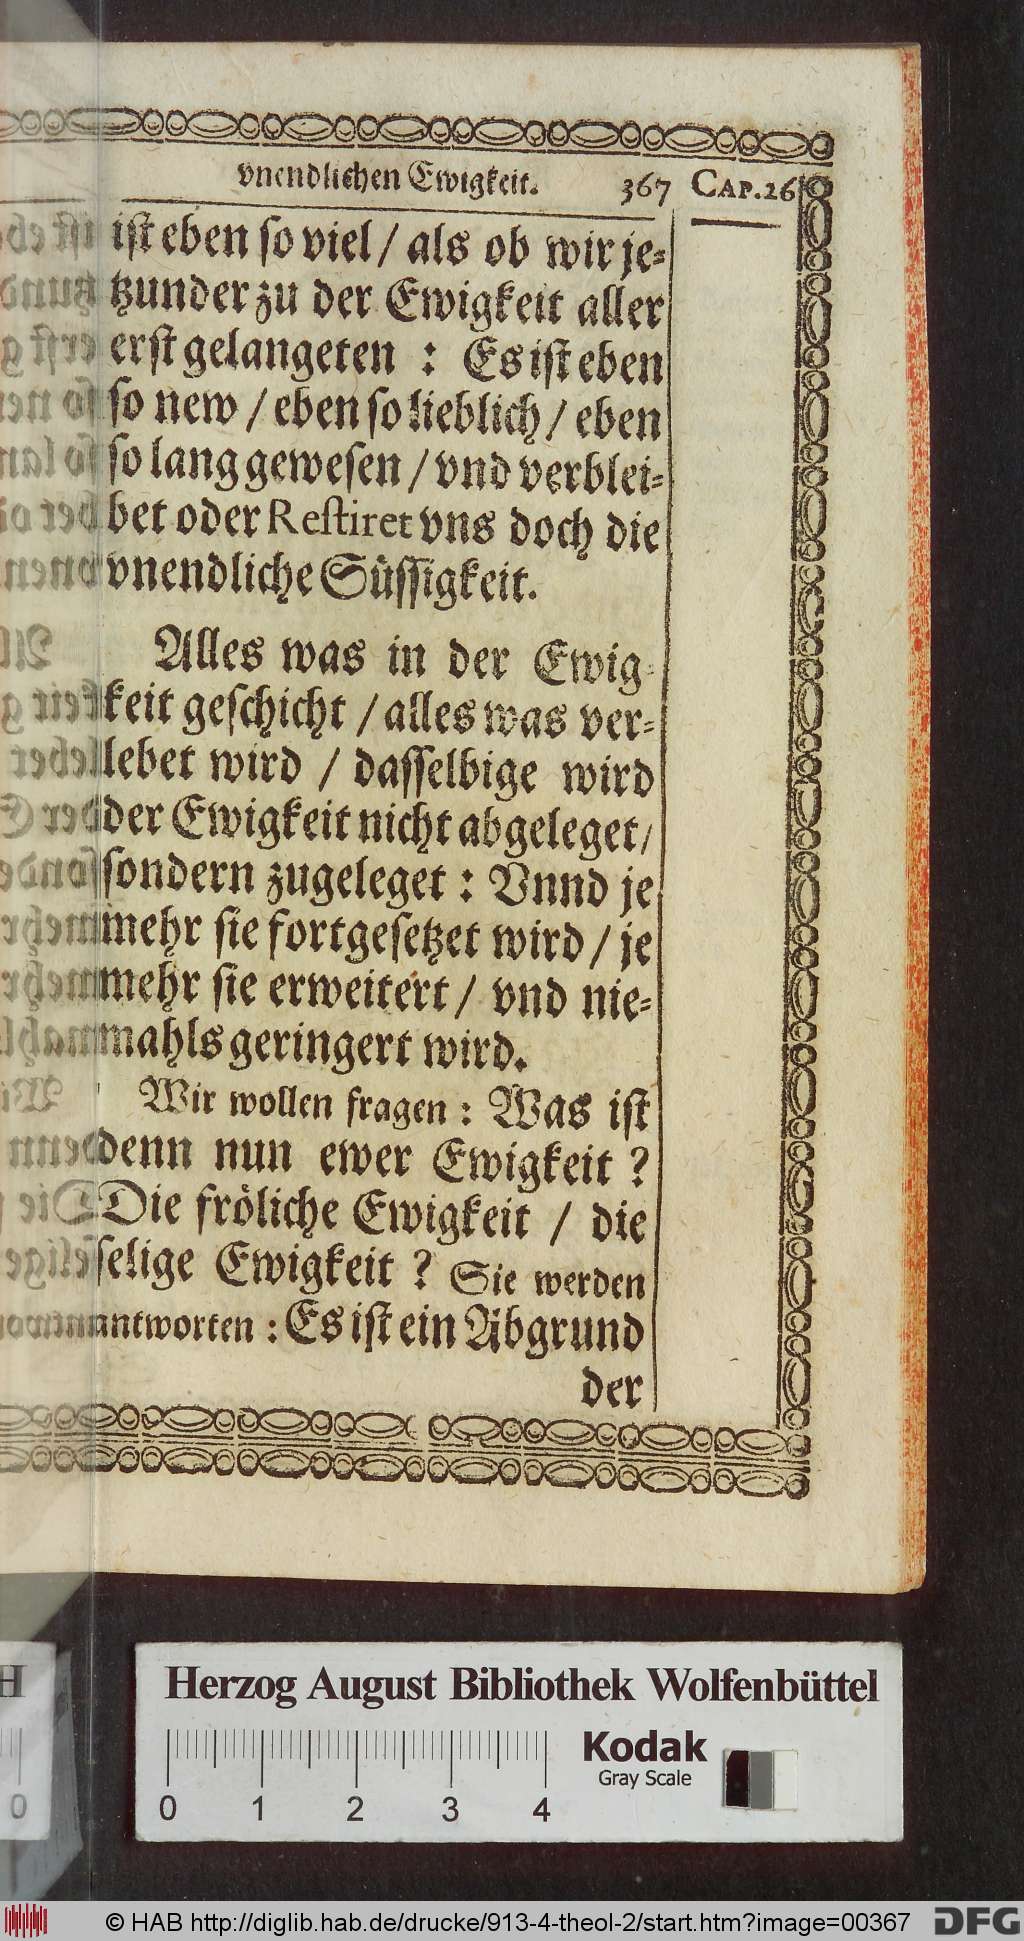 vnendlichen Ewigkeit. 367 CAP. 26
ist eben so viel / als ob wir je-
tzunder zu der Ewigkeit aller
erst gelangeten : Es ist eben
so new / eben so lieblich / eben
so lang gewesen / vnd verblei-
bet oder Restiret vns doch die
vnendliche Süssigkeit.
Alles was in der Ewig-
keit geschicht / alles was ver-
lebet wird / dasselbige wird
der Ewigkeit nicht abgeleget /
sondern zugeleget : Vnnd je
mehr sie fortgesetzet wird / je
mehr sie erweitert / vnd nie-
mahls geringert wird.
Wir wollen fragen : Was ist
denn nun ewer Ewigkeit ?
Die fröliche Ewigkeit / die
selige Ewigkeit ? Sie werden
antworten : Es ist ein Abgrund
der
Herzog August Bibliothek Wolfenbüttel
Kodak
Gray Scale
0 1 2 3 4
© HAB http://diglib.hab.de/drucke/913-4-theol-2/start.htm?image=00367
DFG